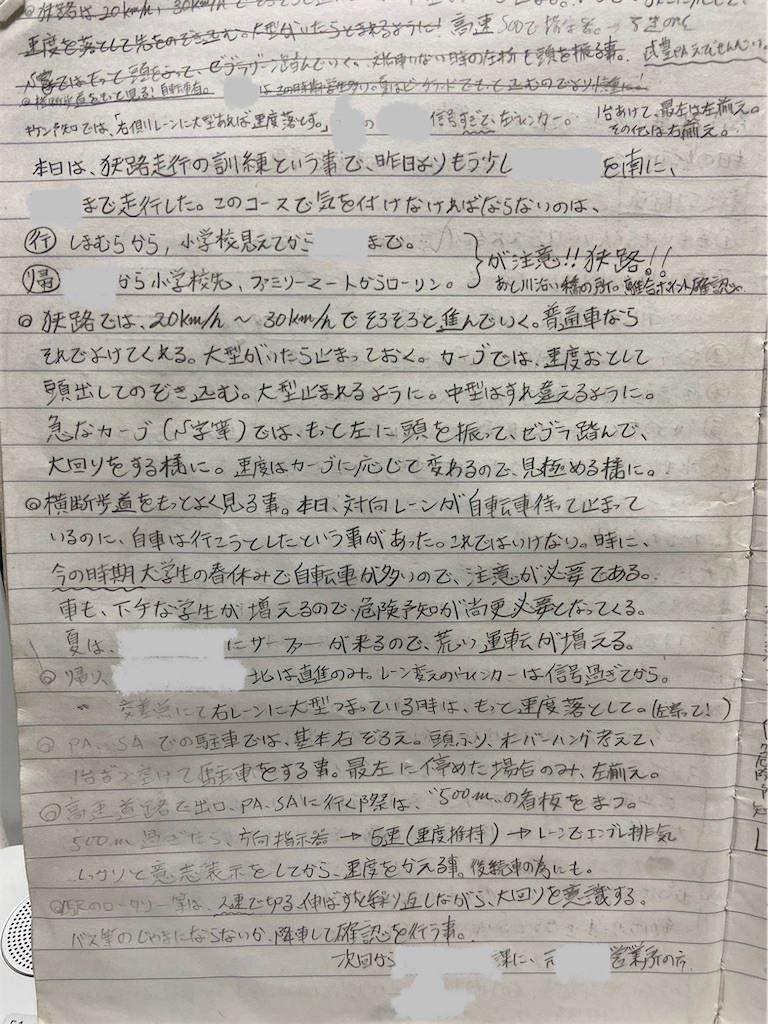 ◎狭路は20km/h、30km/hで
速度を落として先をのぞき込む。大型がいたら止まれるように！高速500で指示器。
S字ではもっと頭をよって、ゼブラゾーン踏んでいく。対向車いない時の左折も頭を振る事。武豊
◎横断歩道をもっと見る！自転車有。 はこの時期学生多り。夏は
キケン予知では、「右側レーンに大型あれば速度落とす。」 の 信号すぎで、左ウィンカー。 1台あけて、最左は左揃え。
その他は右揃え。
本日は、狭路走行の訓練という事で、昨日よりもう少し を南に、
まで走行した。このコースで気を付けなければならないのは、
行 しまむらから、小学校見えてから まで。
帰 から小学校先、ファミリーマートからローソン。
が注意!!狭路!!
あと川沿い橋の所。離合ポイント確認。
◎狭路では、20km/h～30km/hでそろそろと進んでいく。普通車なら
それでよけてくれる。大型がいたら止まっておく。カーブでは、速度おとして
頭出してのぞき込む。大型止まれるように。中型はすれ違えるように。
急なカーブ(S字等)では、もっと左に頭を振って、ゼブラ踏んで、
大回りをする様に。速度はカーブに応じて変わるので、見極める様に。
◎横断歩道をもっとよく見る事。本日、対向レーンが自転車待って止まって
いるのに、自車は行こうとしたという事があった。これではいけない。時に、
今の時期大学生の春休みで自転車が多いので、注意が必要である。
車も、下手な学生が増えるので、危険予知が尚更必要となってくる。
夏は、 にサーファーが来るので、荒い運転が増える。
◎帰り、 北は直進のみ。レーン変えのウィンカーは信号過ぎてから。
〃 交差点にて右レーンに大型つまっている時は、もっと速度落として。(左寄って!)
◎PA、SAでの駐車では、基本右ぞろえ。頭ふり、オーバーハング考えて、
1台ずつ空けて駐車をする事。最左に停めた場合のみ、左揃え。
◎高速道路で出口、PA、SAに行く際は、"500m"の看板をまつ。
500m過ぎたら、方向指示器→5速(速度維持)→レーンでエンブレ排気
しっかりと意志表示をしてから、速度をかえる事。後続車の為にも。
◎駅のロータリー等は、2速で切る、伸ばすを繰り返しながら、大回りを意識する。
バス等のじゃまにならないか、降車して確認を行う事。
次回から 課に、元 営業所の方